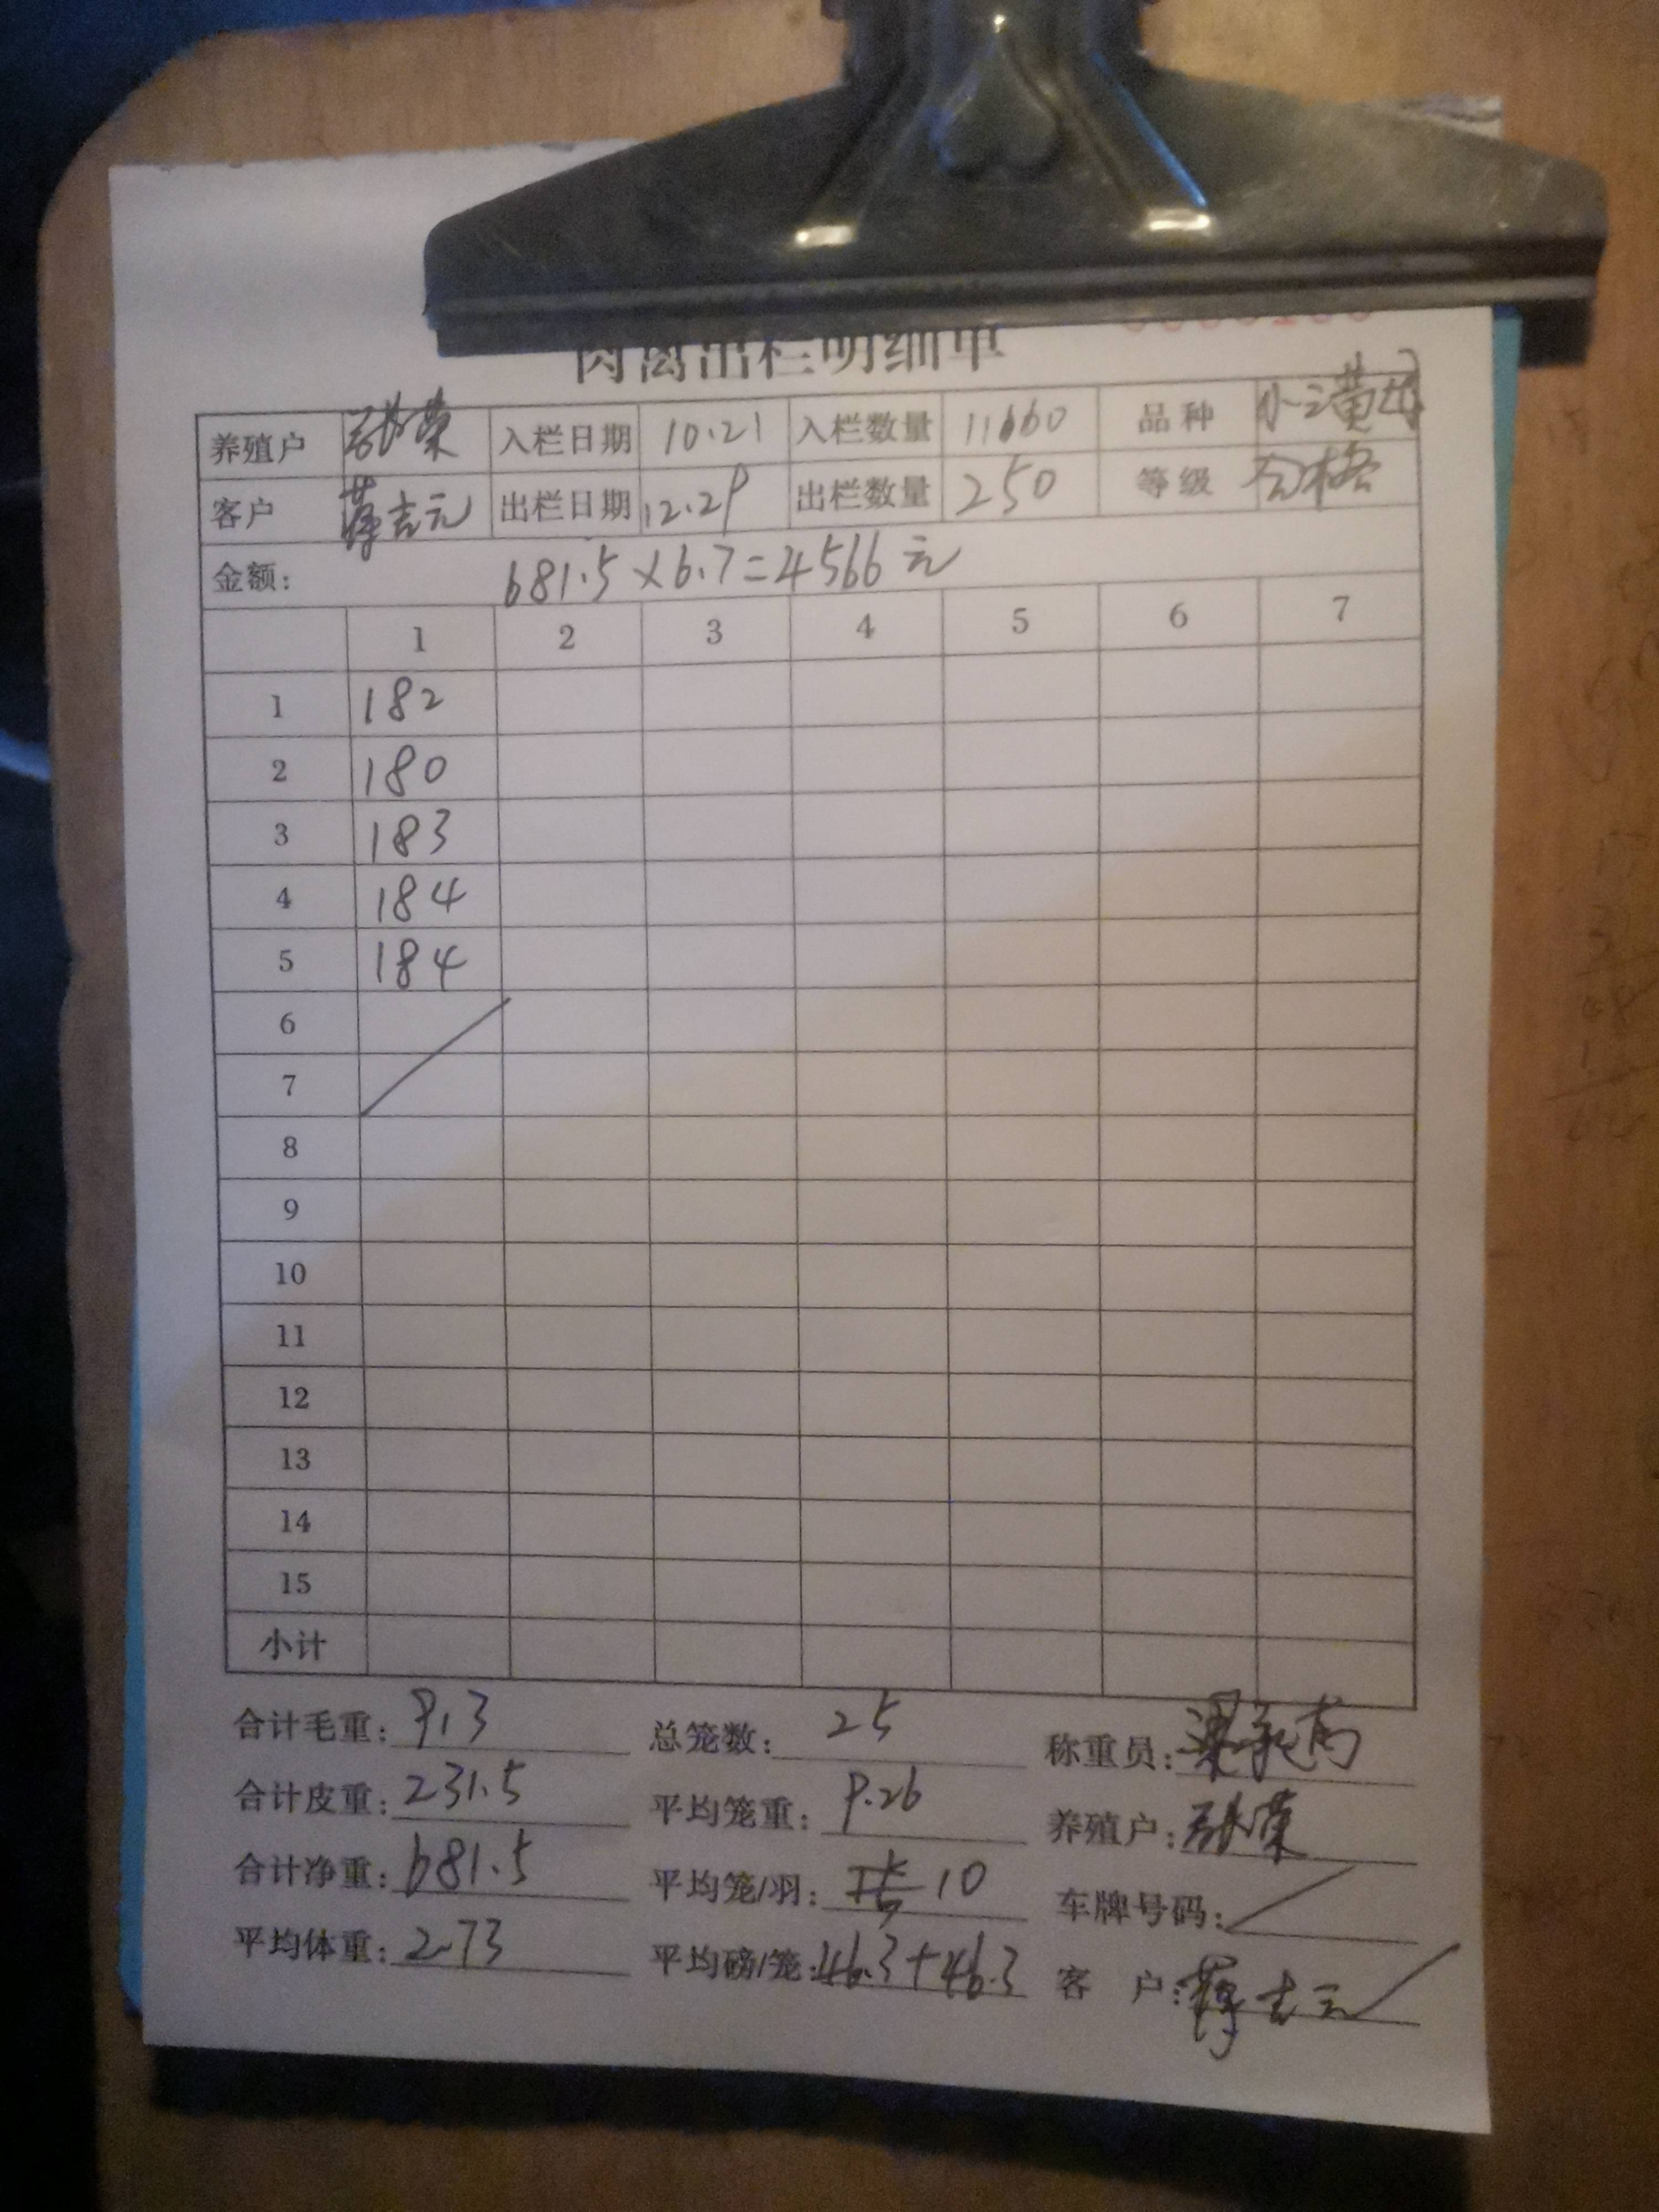 肉禽出栏明细单
养殖户 张荣 入栏日期 10.21 入栏数量 11660 品种 小三黄母
客户 蒋吉元 出栏日期 12.29 出栏数量 250 等级 合格
金额: 681.5×6.7=4566元
1 2 3 4 5 6 7
1 182
2 180
3 183
4 184
5 184
6
7
8
9
10
11
12
13
14
15
小计
合计毛重: 913 总笼数: 25 称重员:
合计皮重: 231.5 平均笼重: 9.26 养殖户: 张荣
合计净重: 681.5 平均笼/羽: 10 车牌号码:
平均体重: 2.73 平均磅/笼: 46.3+46.3 客 户: 蒋吉元